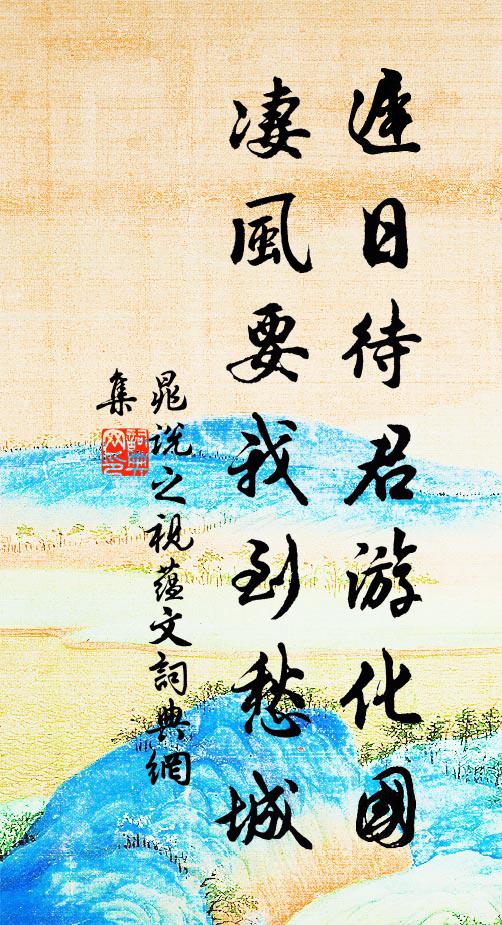 遲日待君游化國
凄風要我到愁城
晁說之視蕴文詞典網
集